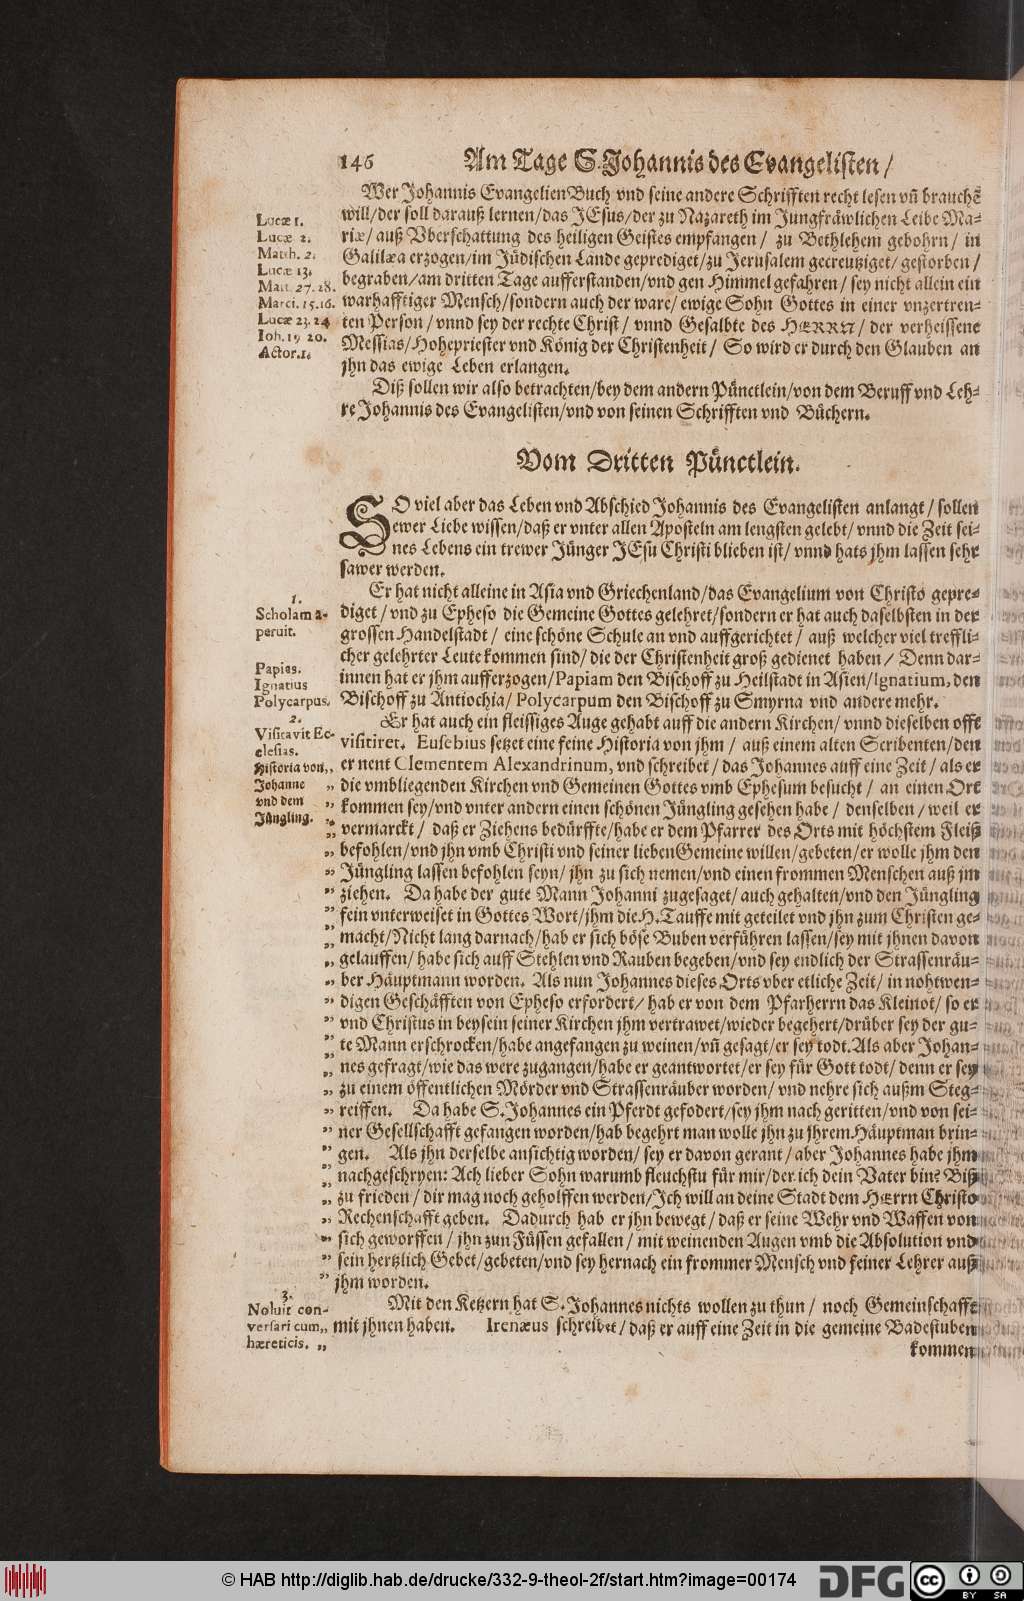 146 Am Tage S. Johannis des Evangelisten /
Wer Johannis Evangelien Buch vnd seine andere Schrifften recht lesen vñ brauchẽ
will/der soll darauß lernen/das JEsus/der zu Nazareth im Jungfräwlichen Leibe Ma-
riæ/ auß Vberschattung des heiligen Geistes empfangen / zu Bethlehem gebohrn / in
Galilæa erzogen/im Jüdischen Lande geprediget/zu Jerusalem gecreutziget/ gestorben /
begraben/am dritten Tage aufferstanden/vnd gen Himmel gefahren / sey nicht allein ein
warhafftiger Mensch/sondern auch der ware/ ewige Sohn Gottes in einer vnzertren-
ten Person / vnnd sey der rechte Christ / vnnd Gesalbte des HERRN / der verheissene
Messias/Hohepriester vnd König der Christenheit / So wird er durch den Glauben an
jhn das ewige Leben erlangen.
Lucæ 1.
Lucæ 2.
Matth. 2.
Lucæ 13.
Matt. 27. 28.
Marci. 15. 16.
Lucæ 23. 24
Ioh. 19 20.
Actor. 1.
Diß sollen wir also betrachten/bey dem andern Pünctlein/von dem Beruff vnd Leh-
re Johannis des Evangelisten/vnd von seinen Schrifften vnd Büchern.
Vom Dritten Pünctlein.
SO viel aber das Leben vnd Abschied Johannis des Evangelisten anlangt / sollen
ewer Liebe wissen/daß er vnter allen Aposteln am lengsten gelebt/ vnnd die Zeit sei-
nes Lebens ein trewer Jünger JEsu Christi blieben ist/ vnnd hats jhm lassen sehr
sawer werden.
Er hat nicht alleine in Asia vnd Griechenland/das Evangelium von Christo gepre-
diget / vnd zu Epheso die Gemeine Gottes gelehret/sondern er hat auch daselbsten in der
grossen Handelstadt / eine schöne Schule an vnd auffgerichtet / auß welcher viel treffli-
cher gelehrter Leute kommen sind/ die der Christenheit groß gedienet haben / Denn dar-
innen hat er jhm aufferzogen/Papiam den Bischoff zu Heilstadt in Asien/Ignatium, den
Bischoff zu Antiochia/ Polycarpum den Bischoff zu Smyrna vnd andere mehr.
1.
Scholam a-
peruit.
Papias.
Ignatius
Polycarpus.
Er hat auch ein fleissiges Auge gehabt auff die andern Kirchen/ vnnd dieselben offt
visitiret. Eusebius setzet eine feine Historia von jhm / auß einem alten Scribenten/den
er nent Clementem Alexandrinum, vnd schreibet / das Johannes auff eine Zeit / als er
die vmbliegenden Kirchen vnd Gemeinen Gottes vmb Ephesum besucht / an einen Ort
kommen sey/vnd vnter andern einen schönen Jüngling gesehen habe / denselben / weil er
vermarckt / daß er Ziehens bedürffte/habe er dem Pfarrer des Orts mit höchstem Fleiß
befohlen/vnd jhn vmb Christi vnd seiner lieben Gemeine willen/gebeten/er wolle jhm den
Jüngling lassen befohlen seyn/ jhn zu sich nemen/vnd einen frommen Menschen auß jm
ziehen. Da habe der gute Mann Johanni zugesaget/ auch gehalten/vnd den Jüngling
fein vnterweiset in Gottes Wort/jhm die H. Tauffe mit geteilet vnd jhn zum Christen ge-
macht/Nicht lang darnach/hab er sich böse Buben verführen lassen/sey mit jhnen davon
gelauffen/ habe sich auff Stehlen vnd Rauben begeben/vnd sey endlich der Strassenräu-
ber Häuptmann worden. Als nun Johannes dieses Orts vber etliche Zeit/ in nohtwen-
digen Geschäfften von Epheso erfordert/ hab er von dem Pfarherrn das Kleinot/ so er
vnd Christus in beysein seiner Kirchen jhm vertrawet/wieder begehert/drüber sey der gu-
te Mann erschrocken/habe angefangen zu weinen/vñ gesagt/er sey todt. Als aber Johan-
nes gefragt/wie das were zugangen/habe er geantwortet/er sey für Gott todt/ denn er sey
zu einem öffentlichen Mörder vnd Strassenräuber worden/ vnd nehre sich außm Steg-
reiffen. Da habe S. Johannes ein Pferdt gefodert/sey jhm nach geritten/vnd von sei-
ner Gesellschafft gefangen worden/hab begehrt man wolle jhn zu jhrem Häuptman brin-
gen. Als jhn derselbe ansichtig worden/ sey er davon gerant / aber Johannes habe jhm
nachgeschryen: Ach lieber Sohn warumb fleuchstu für mir/der ich dein Vater bin? Biß
zu frieden / dir mag noch geholffen werden/Ich will an deine Stadt dem HErrn Christo
Rechenschafft geben. Dadurch hab er jhn bewegt / daß er seine Wehr vnd Waffen von
sich geworffen / jhn zun Füssen gefallen / mit weinenden Augen vmb die Absolution vnd
sein hertzlich Gebet/gebeten/vnd sey hernach ein frommer Mensch vnd feiner Lehrer auß
jhm worden.
2.
Visitavit Ec-
clesias.
Historia von
Johanne
vnd dem
Jüngling.
Mit den Ketzern hat S. Johannes nichts wollen zu thun / noch Gemeinschafft
mit jhnen haben. Irenæus schreibet / daß er auff eine Zeit in die gemeine Badestuben
kommen
3.
Noluit con-
versari cum
hæreticis.
© HAB http://diglib.hab.de/drucke/332-9-theol-2f/start.htm?image=00174
DFG
cc
BY SA